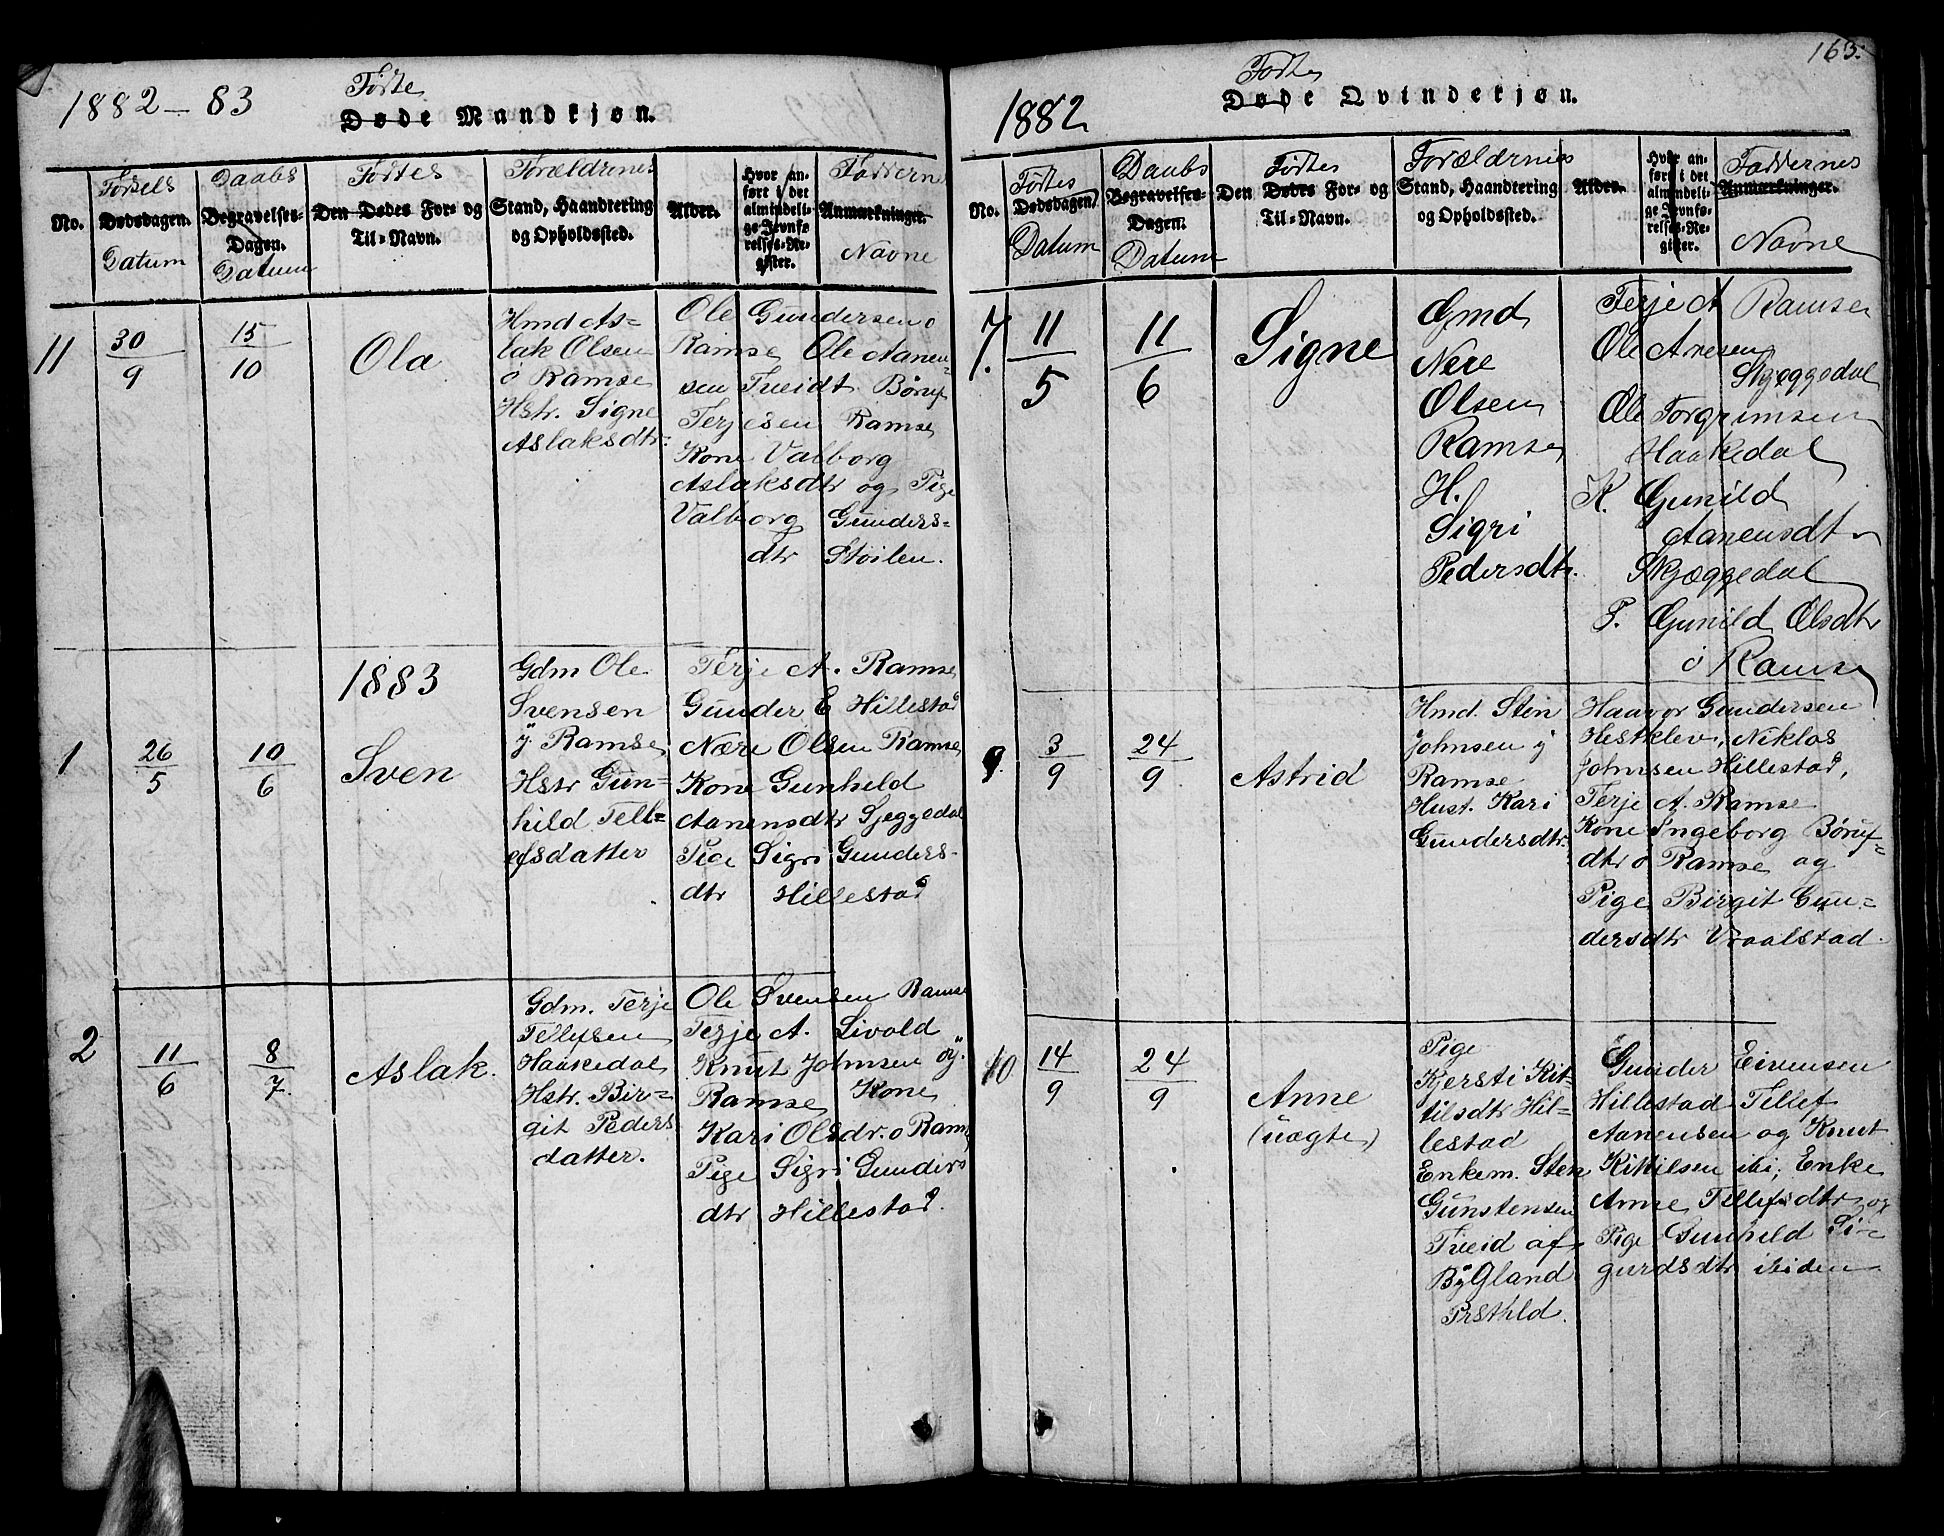 1882 – 83
Fødte
Døde Mandkjøn.
No.
Fødsels
Dødsdagen.
Datum
Daabs
Begravelses-
Dagen.
Datum
Fødtes
Den Dødes For- og
Til-Navn.
Forældrenes
Stand, Haandtering
og Opholdssted.
Alder.
Hvor an-
ført i det
almindeli-
ge Jevnfø-
relses-Re-
gister.
Faddernes
Anmærkninger.
Navne
11
30
9
15
10
Ola
Hmd As-
lak Olsen
ö Ramse
Hstr. Signe
Aslaksdtr.
Ole Gundersen ö
Ramse, Ole Aanen-
sen Tveidt Børuf
Terjesen Ramse,
Kone Valborg
Aslaksdtr og Pige
Valborg Gunders-
dtr Støilen.
1883
1
26
5
10
6
Sven
Gdm Ole
Svensen
y. Ramse,
Hstr Gun-
hild Tell-
efsdatter
Terje A. Ramse,
Gunder E Hillestad
Nære Olsen Ramse,
Kone Gunhild
Aanensdtr Sjeggedal
Pige Sigri Gunders-
dtr Hillestad
2
11
6
8
7.
Aslak.
Gdm. Terje
Tellefsen
Haakedal
Hstr. Bir-
git Peders
datter.
Ole Svensen Ramse
Terje A. Livold
Knut Johnsen öÿ.
Ramse, Kone
Kari Olsdr. o Rams
Pige Sigri Gunders
dtr Hillestad.
163.
1882
Fødte
Døde Qvindekjøn.
No.
Fødtes
Dødsdagen
Datum
Daabs
Begravelses-
Dagen.
Datum
Fødtes
Den Dødes For- og
Til-Navn.
Forældrenes
Stand, Haandtering
og Opholdssted.
Alder.
Hvor an-
ført i det
almindeli-
ge Jevnfø-
relses-Re-
gister.
Faddernes
Anmærkninger.
Navne
7.
11
5
11
6
Signe
Gmd
Nere
Olsen
Ramse,
H.
Sigri
Pedersdtr.
Terje A Ramse
Ole Anesen
Skjeggedal
Ole Torgrimsen
Haakedal
K. Gunild
Aanensdt
Skjæggedal
P. Gunild Olsdtr
ö Ramse
9.
3
9
24
9
Astrid
Hmd. Sten
Johnsen y
Ramse
Hust. Kari
Gundersdtr.
Haavor Gundersen
Hestklev, Niklos
Johnsen Hillestad,
Terje A. Ramse
Kone Ingeborg Børuf-
dtr o Ramse og
Pige Birgit Gun-
dersdtr Vraalstad.
10
14
9
24
9
Anne
(uægte)
Pige
Kjersti Kit-
tilsdtr Hil-
lestad
Enkem. Sten
Gunstensen
Tveid af
Bygland
Prsthld.
Gunder Eivensen
Hillestad Tellef
Aanensen og Knut
Kittilsen ibi, Enke
Anne Tellefsdtr og
Pige Gunhild Si-
gurdsdtr ibiden